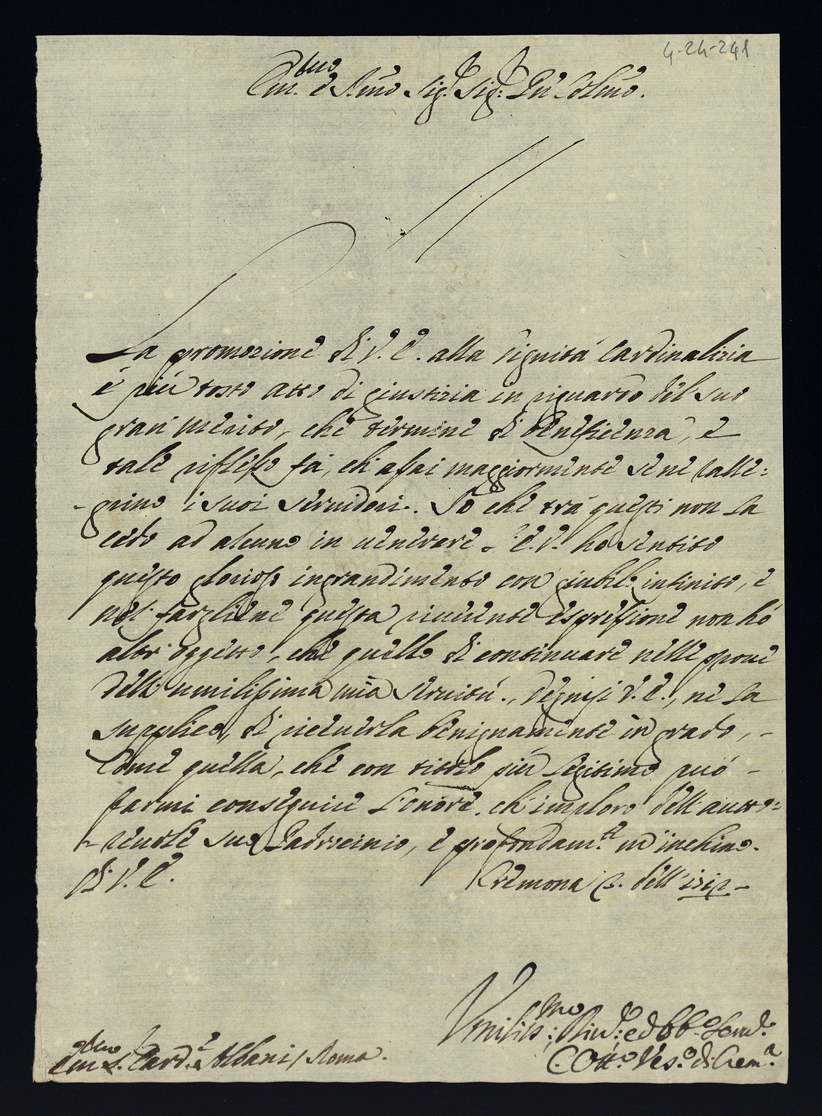 4-24-241
Em.mo e R.mo Sig.r Sig.r P.ne Col.mo
La promozione di V. E. alla dignità Cardinalizia
è più tosto atto di giustizia in riguardo del suo
gran merito, che termine di beneficienza, e
tale riflesso fà, ch'assai maggiormente se ne ralle:
grino i suoi servidori. Io che trà questi non la
cedo ad alcuno in venerare l'E. V. hò sentito
questo glorioso ingrandimento con giubilo infinito, e
nel fargliene questa riverente espressione non hò
altr'oggetto, che quello di continuare nelle prove
dell'umilissima mia servitù. Degnisi V. E., ne la
supplico, di riceverla benignamente in grado,
come quella, che con titolo più legitimo può
farmi conseguire l'onore ch'imploro dell'autto=
revole suo Padrocinio, e profondam.te m'inchino.
Di V. E.
Cremona
dell'
Umiliss.mo Div.mo ed Obb. Serv.
Ves.o di Crem.a
Em.mo S.r Card.le Albani / Roma.